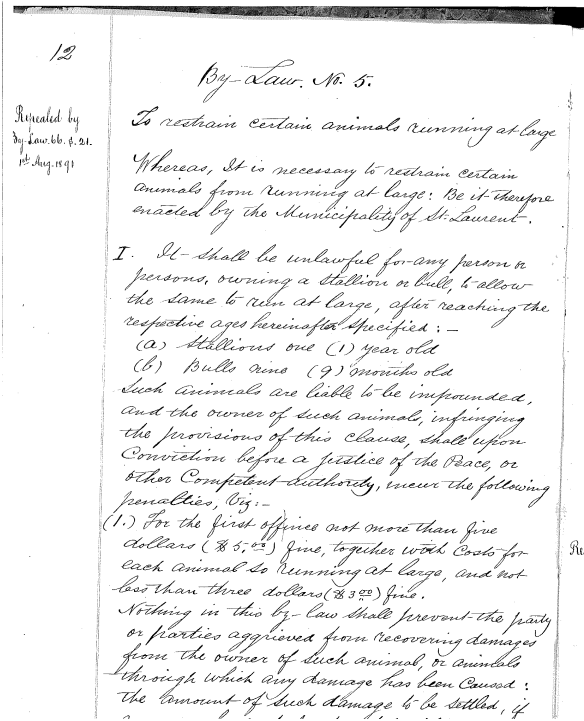 12
By-Law. No. 5.
Repealed by
By-Law. 66. s. 21.
1st Aug. 1891
To restrain certain animals running at large
Whereas, It is necessary to restrain certain
animals from running at large: Be it therefore
enacted by the Municipality of St. Laurent.
I. It shall be unlawful for any person or
persons, owning a stallion or bull, to allow
the same to run at large, after reaching the
respective ages hereinafter specified:-
(a) Stallions one (1) year old
(b) Bulls nine (9) months old
Such animals are liable to be impounded,
and the owner of such animals, infringing
the provisions of this clause, shall upon
Conviction before a Justice of the Peace, or
other Competent authority, incur the following
penalties, Viz:-
(1.) For the first offince not more than five
dollars ($5.00) fine, together with Costs for
each animal so running at large, and not
less than three dollars ($3 00) fine.
Nothing in this by-law shall prevent the party
or parties aggrieved from recovering damages
from the owner of such animal, or animals
through which any damage has been Caused:
the amount of such damage to be settled, if
Re